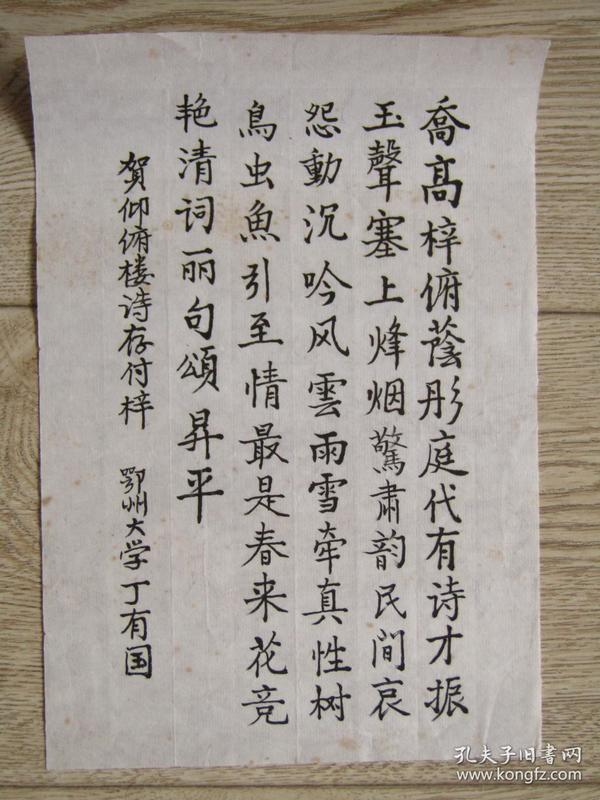 喬高梓俯蔭彤庭代有诗才振
玉聲塞上烽烟驚肃韵民間哀
怨動沉吟风雲雨雪牵真性树
鳥虫魚引至情最是春来花竞
艳清词丽句頌昇平
贺仰俯楼诗存付梓 鄂州大学丁有国
孔夫子旧书网
www.kongfz.com